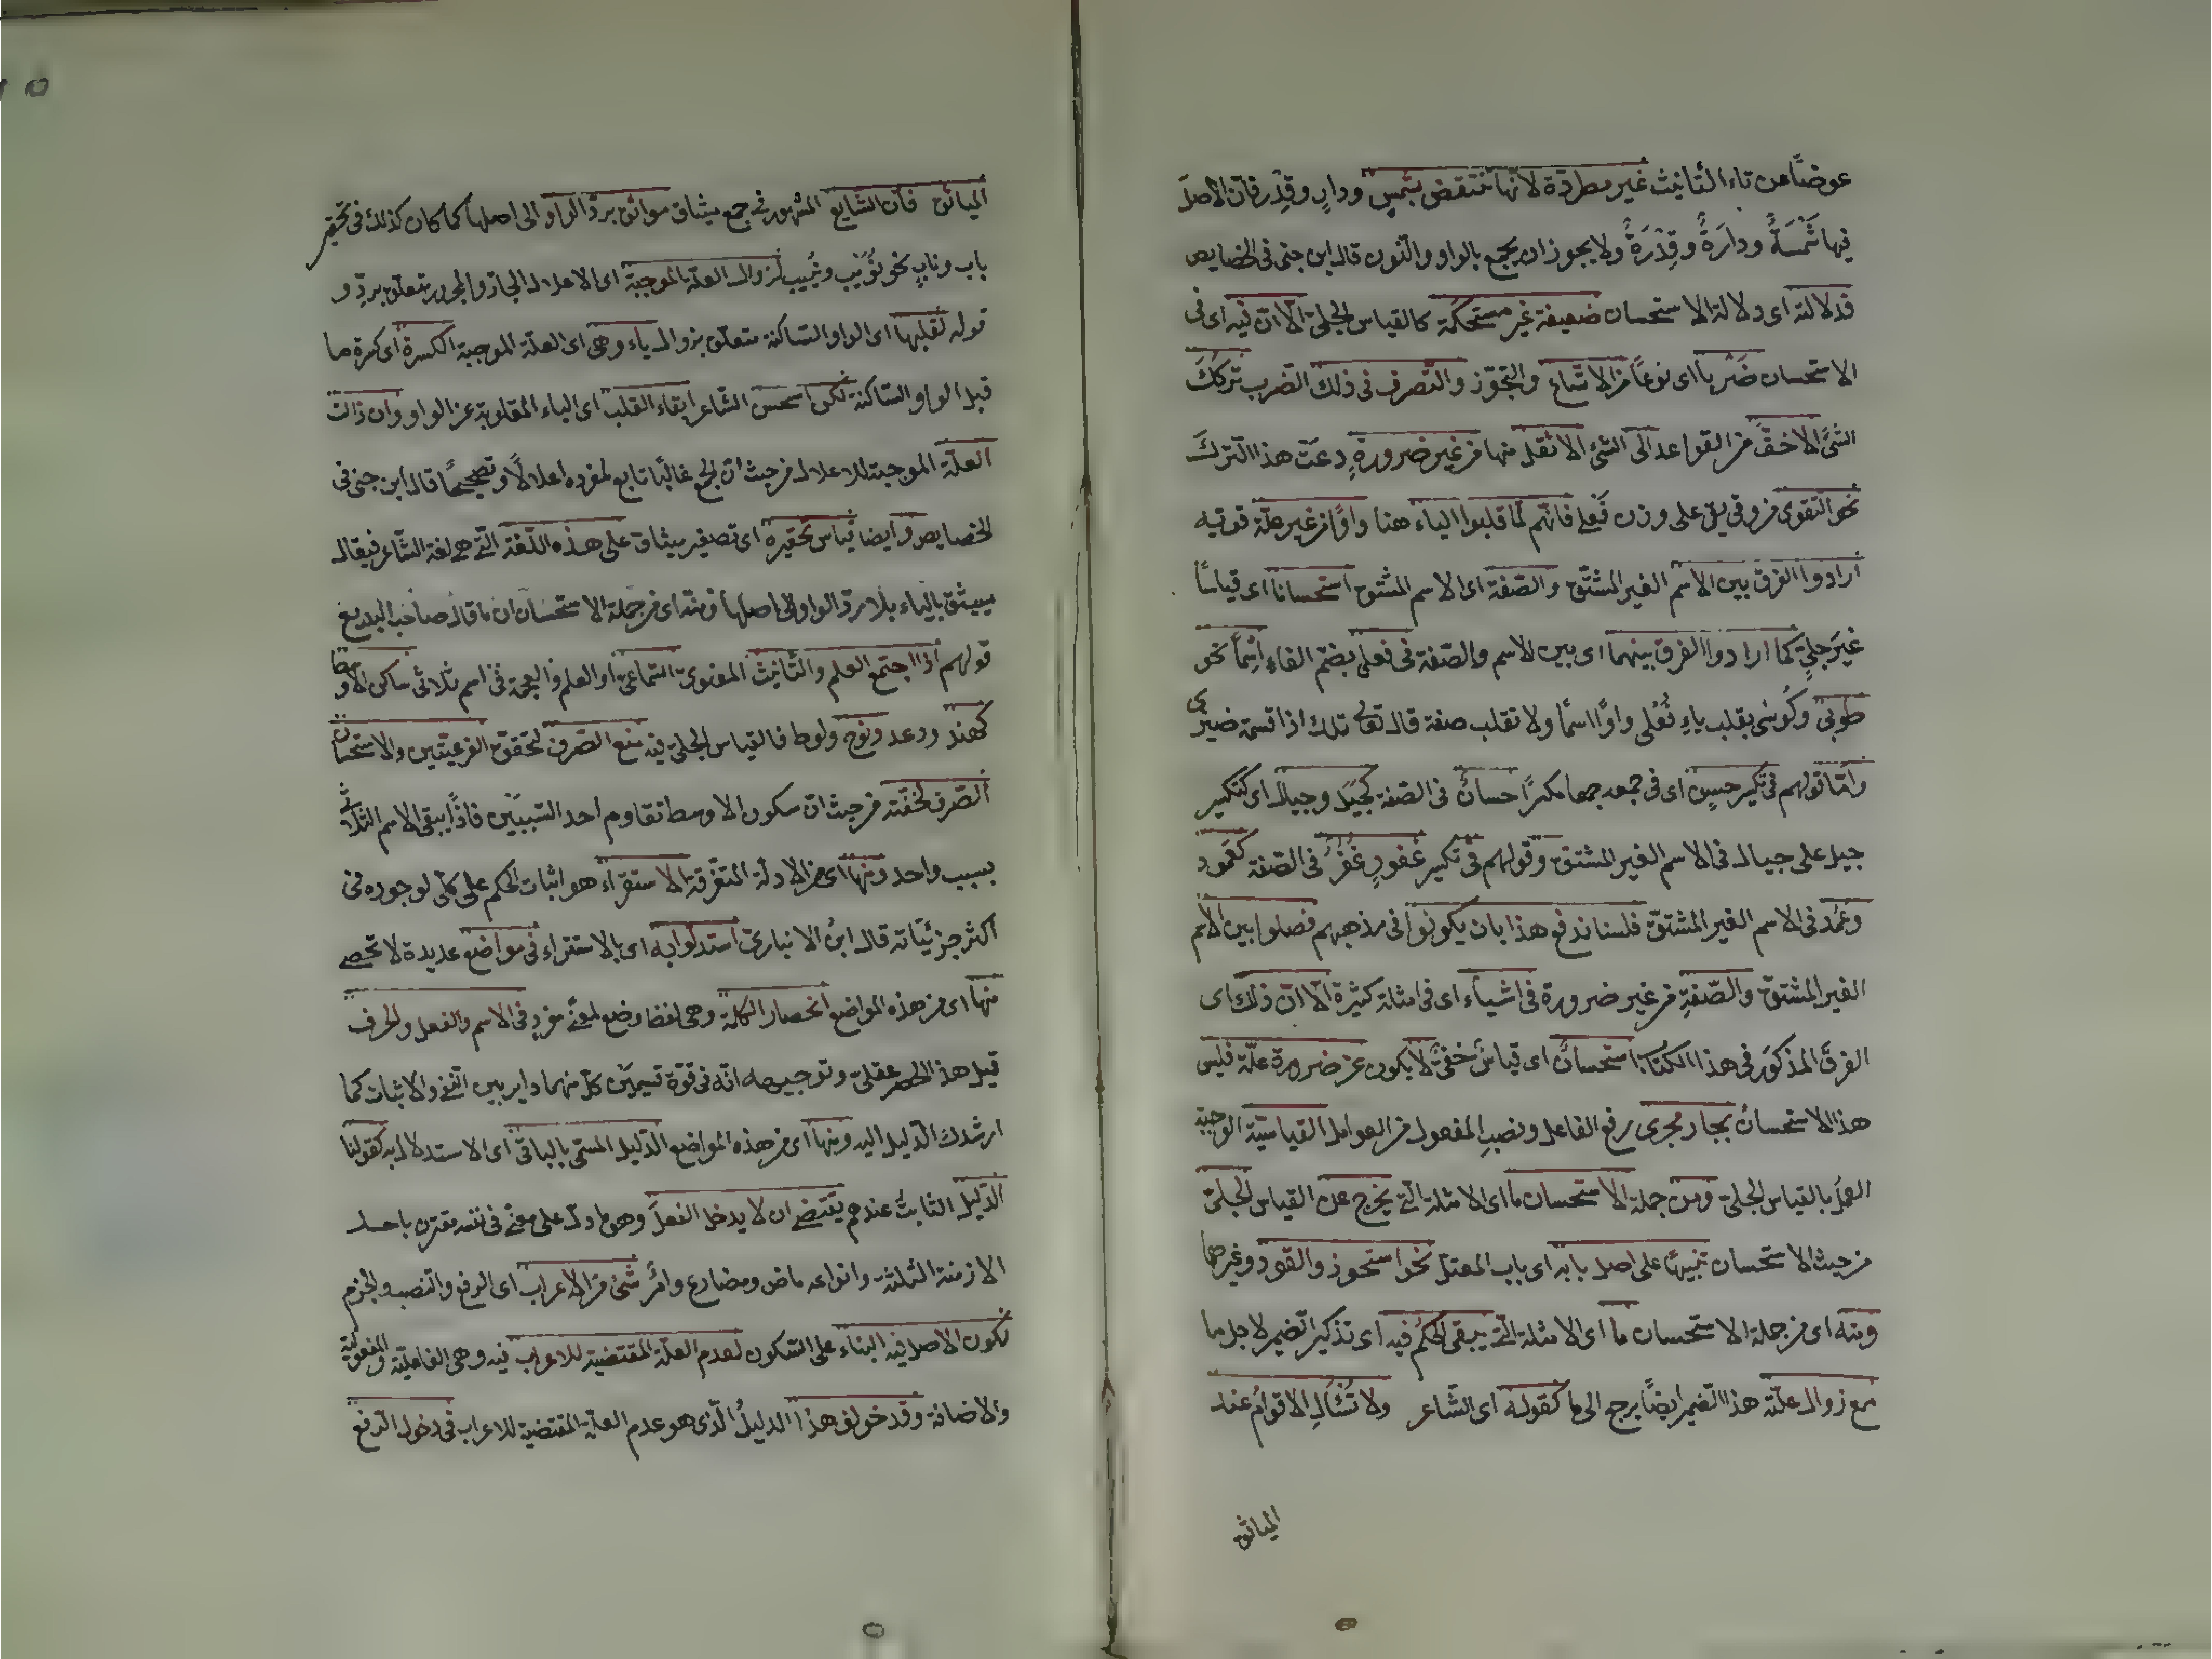 عوضًا عن تاء التانيث غير مطردة لانها تنتقض بشمس ودار وقدر فان الاصل
فيها شَمْسَةٌ ودارَةٌ وقِدْرَةٌ ولا يجوز ان يجمع بالواو والنون قال ابن جنى فى الخصايص
فدلالته اى دلالة الاستحسان ضعيفة غير مستحكمة كالقياس الجلىّ الّا انّ فيه اى فى
الاستحسان ضَرْبا اى نوعًا من الاتساع والتجوّز والتصرف فى ذلك الضرب تركُكَ
الشئَ الاخفَّ من القواعد الى الشئ الاثقل منها من غير ضرورةٍ دعت هذا الترك
نحو التقوى من وقى يقى على وزن فَعْلى فانهم لمّا قلبوا الياء هنا واوًا من غير علّة قوتيه
ارادوا الفرق بين الاسم الغير المشتق والصّفة اى الاسم المشتق استحسانا اى قياسًا
غيرَ جلىٍّ كما ارادوا الفرق بينهما اى بين الاسم والصّفة فى فعلى بضمّ الفاء اسْمًا نحو
طوبىٰ وكُوسى بقلب ياءِ فُعْلى واوًا اسمًا ولا تقلب صفة قال تعالى تلك اذا قسمة ضيزى
وامّا قولهم فى تكسير حسن اى فى جمعه جمعا مكسرًا حسانٌ فى الصفة كجَبَل وجبال اى كتكسير
جبل على جبال فى الاسم الغير المشتق وقولهم فى تكسير غفورٍ غُفُرٌ فى الصّفة كعَمود
وعُمُد فى الاسم الغير المشتقّ فلسنا ندفع هذا بان يكونوا فى مذهبهم فصلوا بين الاسم
الغير المشتق والصّفةِ من غير ضرورة فى اشياء اى فى امثلة كثيرة الّا انّ ذلك اى
الفرقَ المذكورَ فى هذا الكتاب استحسانٌ اى قياسٌ خفىٌّ لا يكون عن ضرورة علّة فليس
هذا الاستحسان بجار مجرى رفع الفاعل ونصبِ المفعول من العوامل القياسيّة الموجبة
العمل بالقياس الجلىّ ومن جملة الاستحسان ما اى الامثلة الّتى يخرج عن القياس الجلىّ
من حيث الاستحسان تنبيهًا على اصل بابه اى باب المعتل نحو استحوذ والقود وغيرهما
ومنه اى من جملة الاستحسان ما اى الامثلة الّتى يبقى الحكمُ فيه اى تذكير الضمير لاجل ما
مع زوال علّته هذا الضمير ايضًا يرجع الى ما كقوله اى الشّاعر ولا تسْئَالِ الاقوام عند
المياثق
المياثق فان الشايع المشهور فى جمع ميثاق مواثق بردّ الواو الى اصلها كما كان كذلك فى تحقير
باب وناب نحو بُوَيْب ونُيَيب لزوال العلّة الموجبة اى الاعلال الجارّ والمجرور متعلّق بردّ و
قوله لقلبها اى الواو الساكنة متعلّق بزوال ياء وهى اى العلّة الموجبة الكسرة اى كسرة ما
قبل الواو الساكنة لكن استحسن الشاعر ابقاء القلب اى الياء المقلوبة عن الواو وان زالت
العلّة الموجبة للاعلال من حيث انّ الجمع غالبًا تابع لمفرده اعلالًا وتصحيحًا قال ابن جنى فى
الخصايص وايضا قياس تحقيره اى تصغير ميثاق على هذه اللّغة الّتى هى لغة الشّاعر فيقال
مييثق بالياء بلا ردّ الواو الى اصلها ومنه اى من جملة الاستحسان ما قال صاحب البديع
قولهم اذا اجتمع العلم والتأنيث المعنوىّ السّماعىّ او العلم والعجمة فى اسم ثلاثى ساكن الاوسط
كهند ودعد ونوح ولوط فالقياس الجلىّ فيه منع الصّرف لتحقّق الفرعيّتين والاستحسان
الصّرف لخفّته من حيث انّ سكون الاوسط تقاوم احد السّببَيْن فاذًا يبقى الاسم الثلاثى
بسبب واحد ومنها اى من الادلة المتفرّقة الاستقراء هو اثبات الحكم على كلّى لوجوده فى
اكثر جزئيّاته قال ابن الانبارى استدلّوا به اى بالاستقراء فى مواضع عديدة لا تحصى
منها اى من هذه المواضع انحصار الكلمة وهى لفظ وضع لمعنًى مفردٍ فى الاسم والفعل والحرف
قيل هذا الحصر عقلىّ وتوجيهه انّه فى قوّة تقسيمَيْن كلّ منهما داير بين النّفى والاثبات كما
ارشدك الدّليل اليه ومنها اى من هذه المواضع الدّليل المسمّى بالباقى اى الاستدلال به كقولنا
الدّليل الثابتُ عندهم يقتضى ان لا يدخل الفعلَ وهو ما دلّ على معنًى فى نفسه مقترن باحد
الازمنة الثلثة وانواعه ماض ومضارع وامر شئ من الاعراب اى الرفع والنصب والجزم
لكون الاصل فيه البناء على السّكون لعدم العلّة المقتضية للاعراب فيه وهى الفاعليّة والمفعوليّة
والاضافة وقد خولف هذا الدليلُ الّذى هو عدم العلّة المقتضية للاعراب فى دخول الرفع